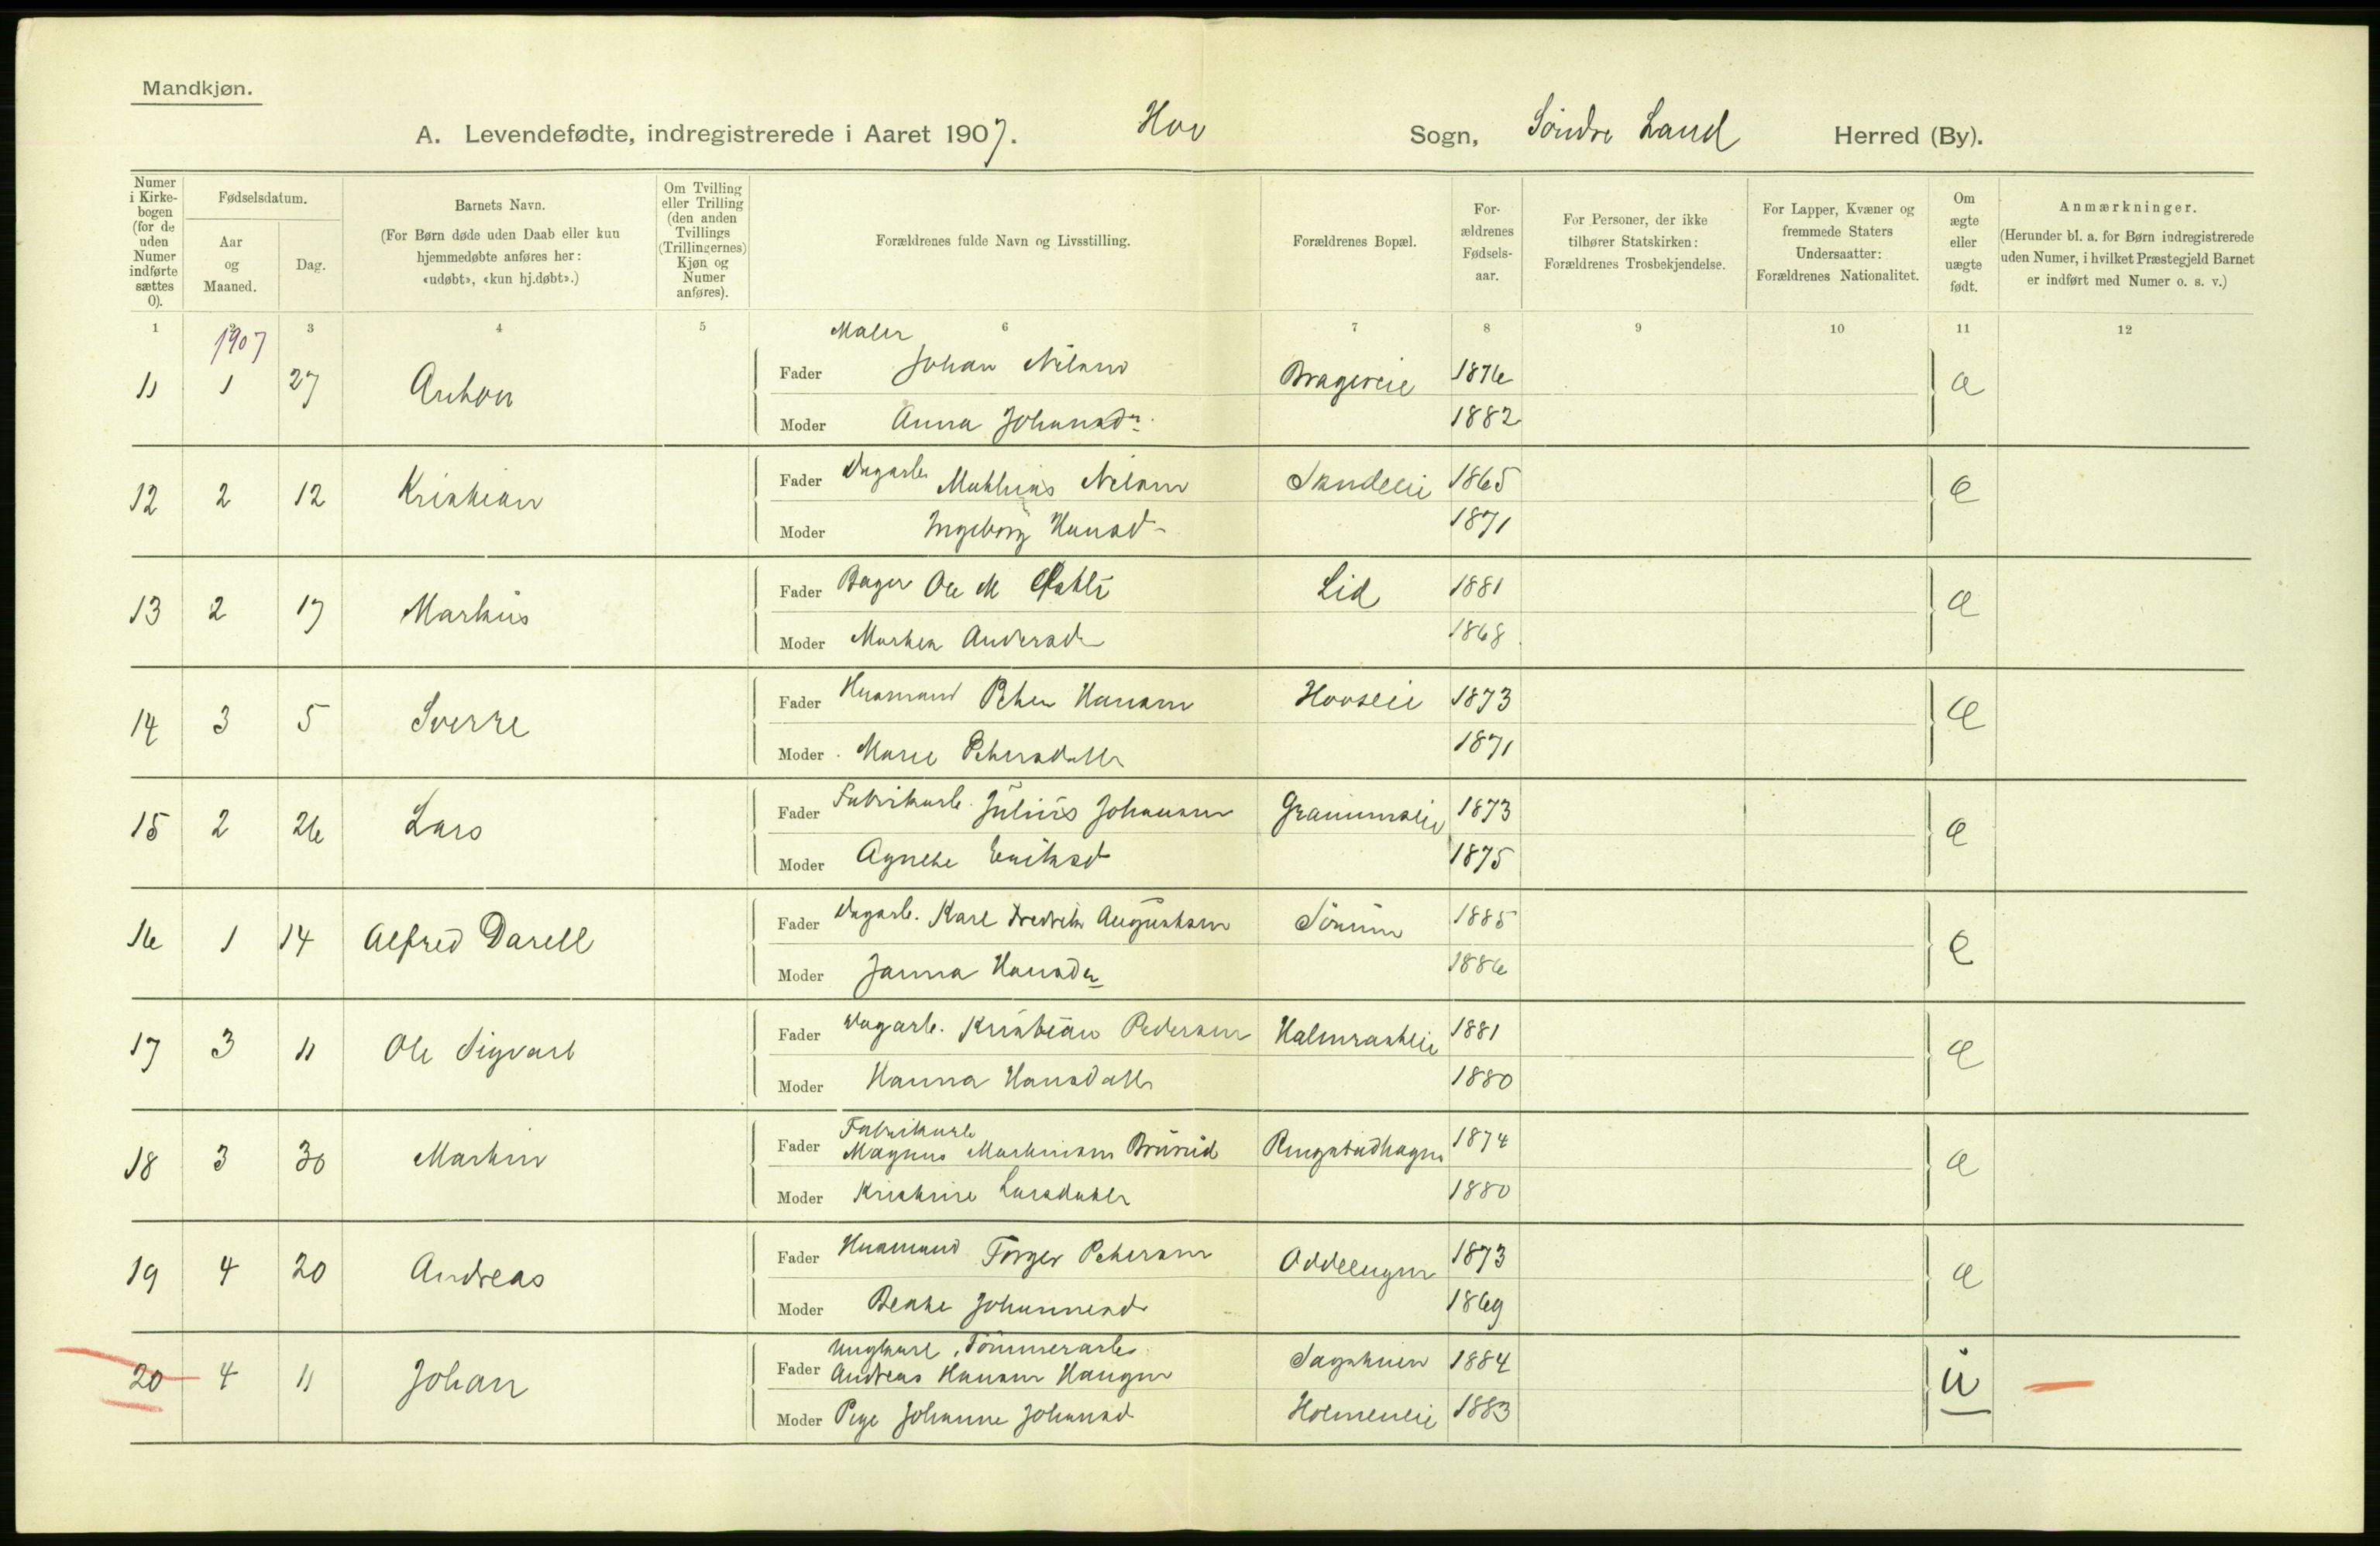 Mandkjøn.
A. Levendefødte, indregistrerede i Aaret 1907. Hov Sogn, Søndre Land Herred (By).
Numer i Kirkebogen (for de uden Numer indførte sættes 0).
Fødselsdatum.
Aar og Maaned.
Dag.
Barnets Navn.
(For Børn døde uden Daab eller kun hjemmedøbte anføres her: «udøbt», «kun hj.døbt».)
Om Tvilling eller Trilling (den anden Tvillings (Trillingernes) Kjøn og Numer anføres).
Forældrenes fulde Navn og Livsstilling.
Forældrenes Bopæl.
Forældrenes Fødselsaar.
For Personer, der ikke tilhører Statskirken: Forældrenes Trosbekjendelse.
For Lapper, Kvæner og fremmede Staters Undersaatter: Forældrenes Nationalitet.
Om ægte eller uægte født.
Anmærkninger.
(Herunder bl. a. for Børn indregistrerede uden Numer, i hvilket Præstegjeld Barnet er indført med Numer o. s. v.)
1 2 3 4 5 6 7 8 9 10 11 12
1907
11 1 27 Anton Fader Maler Johan Nilsen 1876 æ
Moder Anna Johansdr. 1882
12 2 12 Kristian Fader Dagarb. Mathias Nilsen 1865 æ
Moder Ingeborg Hansd 1871
13 2 17 Markus Fader Bager Ole M Lid 1881 æ
Moder Marthea Andersd 1868
14 3 5 Sverre Fader Husmand Peter Hansen Hovseie 1873 æ
Moder Marie Petersdatter 1871
15 2 26 Lars Fader Fabrikarb. Julius Johansen 1873 æ
Moder Agnethe Eriksd 1875
16 1 14 Alfred Darell Fader Dagarb. Karl Fredrik Augustsen 1885 æ
Moder Janna Hansdr 1886
17 3 11 Ole Sigvart Fader Dagarb. Kristian Pedersen Halmrasteie 1881 æ
Moder Hanna Hansdatter 1880
18 3 30 Martin Fader Fabrikarb Magnus Martinsen Bruvud Ringstadhagen 1874 æ
Moder Kristine Larsdatter 1880
19 4 20 Andreas Fader Husmand Torger Petersen Oddeengen 1873 æ
Moder Beate Johannesd 1869
20 4 11 Johan Fader Ungkarl, Tømmerarb. Andreas Hansen Haugen Sagstuen 1884 u
Moder Pige Johanne Johansd Holmeneie 1883